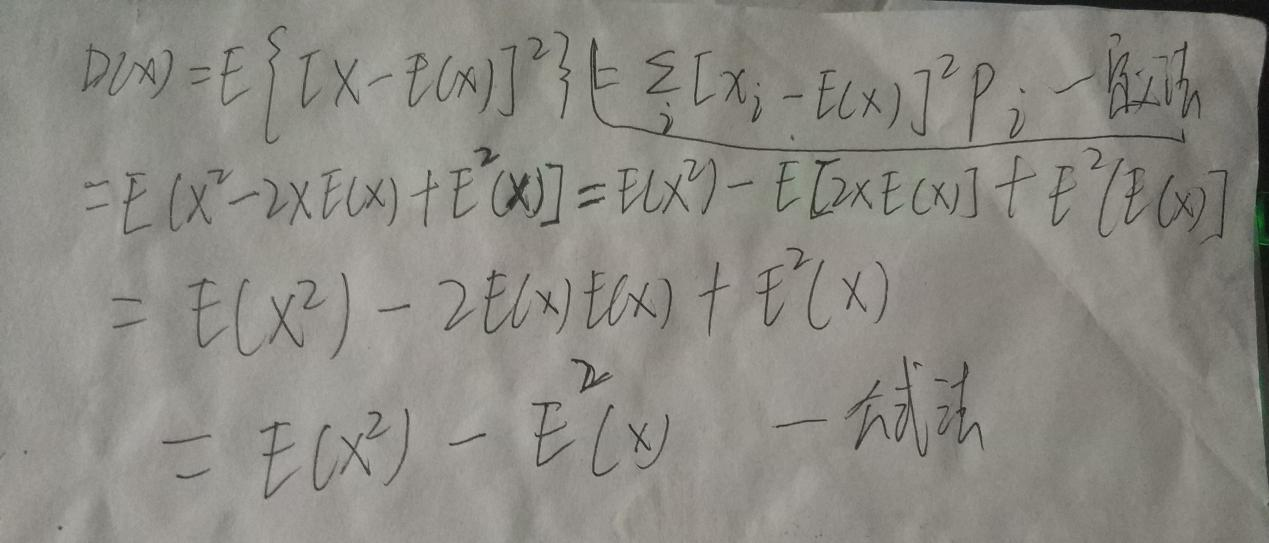 D(X) = E{[X - E(X)]²} = Σᵢ [xᵢ - E(X)]² Pᵢ — 定义法
= E(X² - 2XE(X) + E²(X)] = E(X²) - E[2XE(X)] + E²(E(X)]
= E(X²) - 2E(X)E(X) + E²(X)
= E(X²) - E²(X) — 公式法